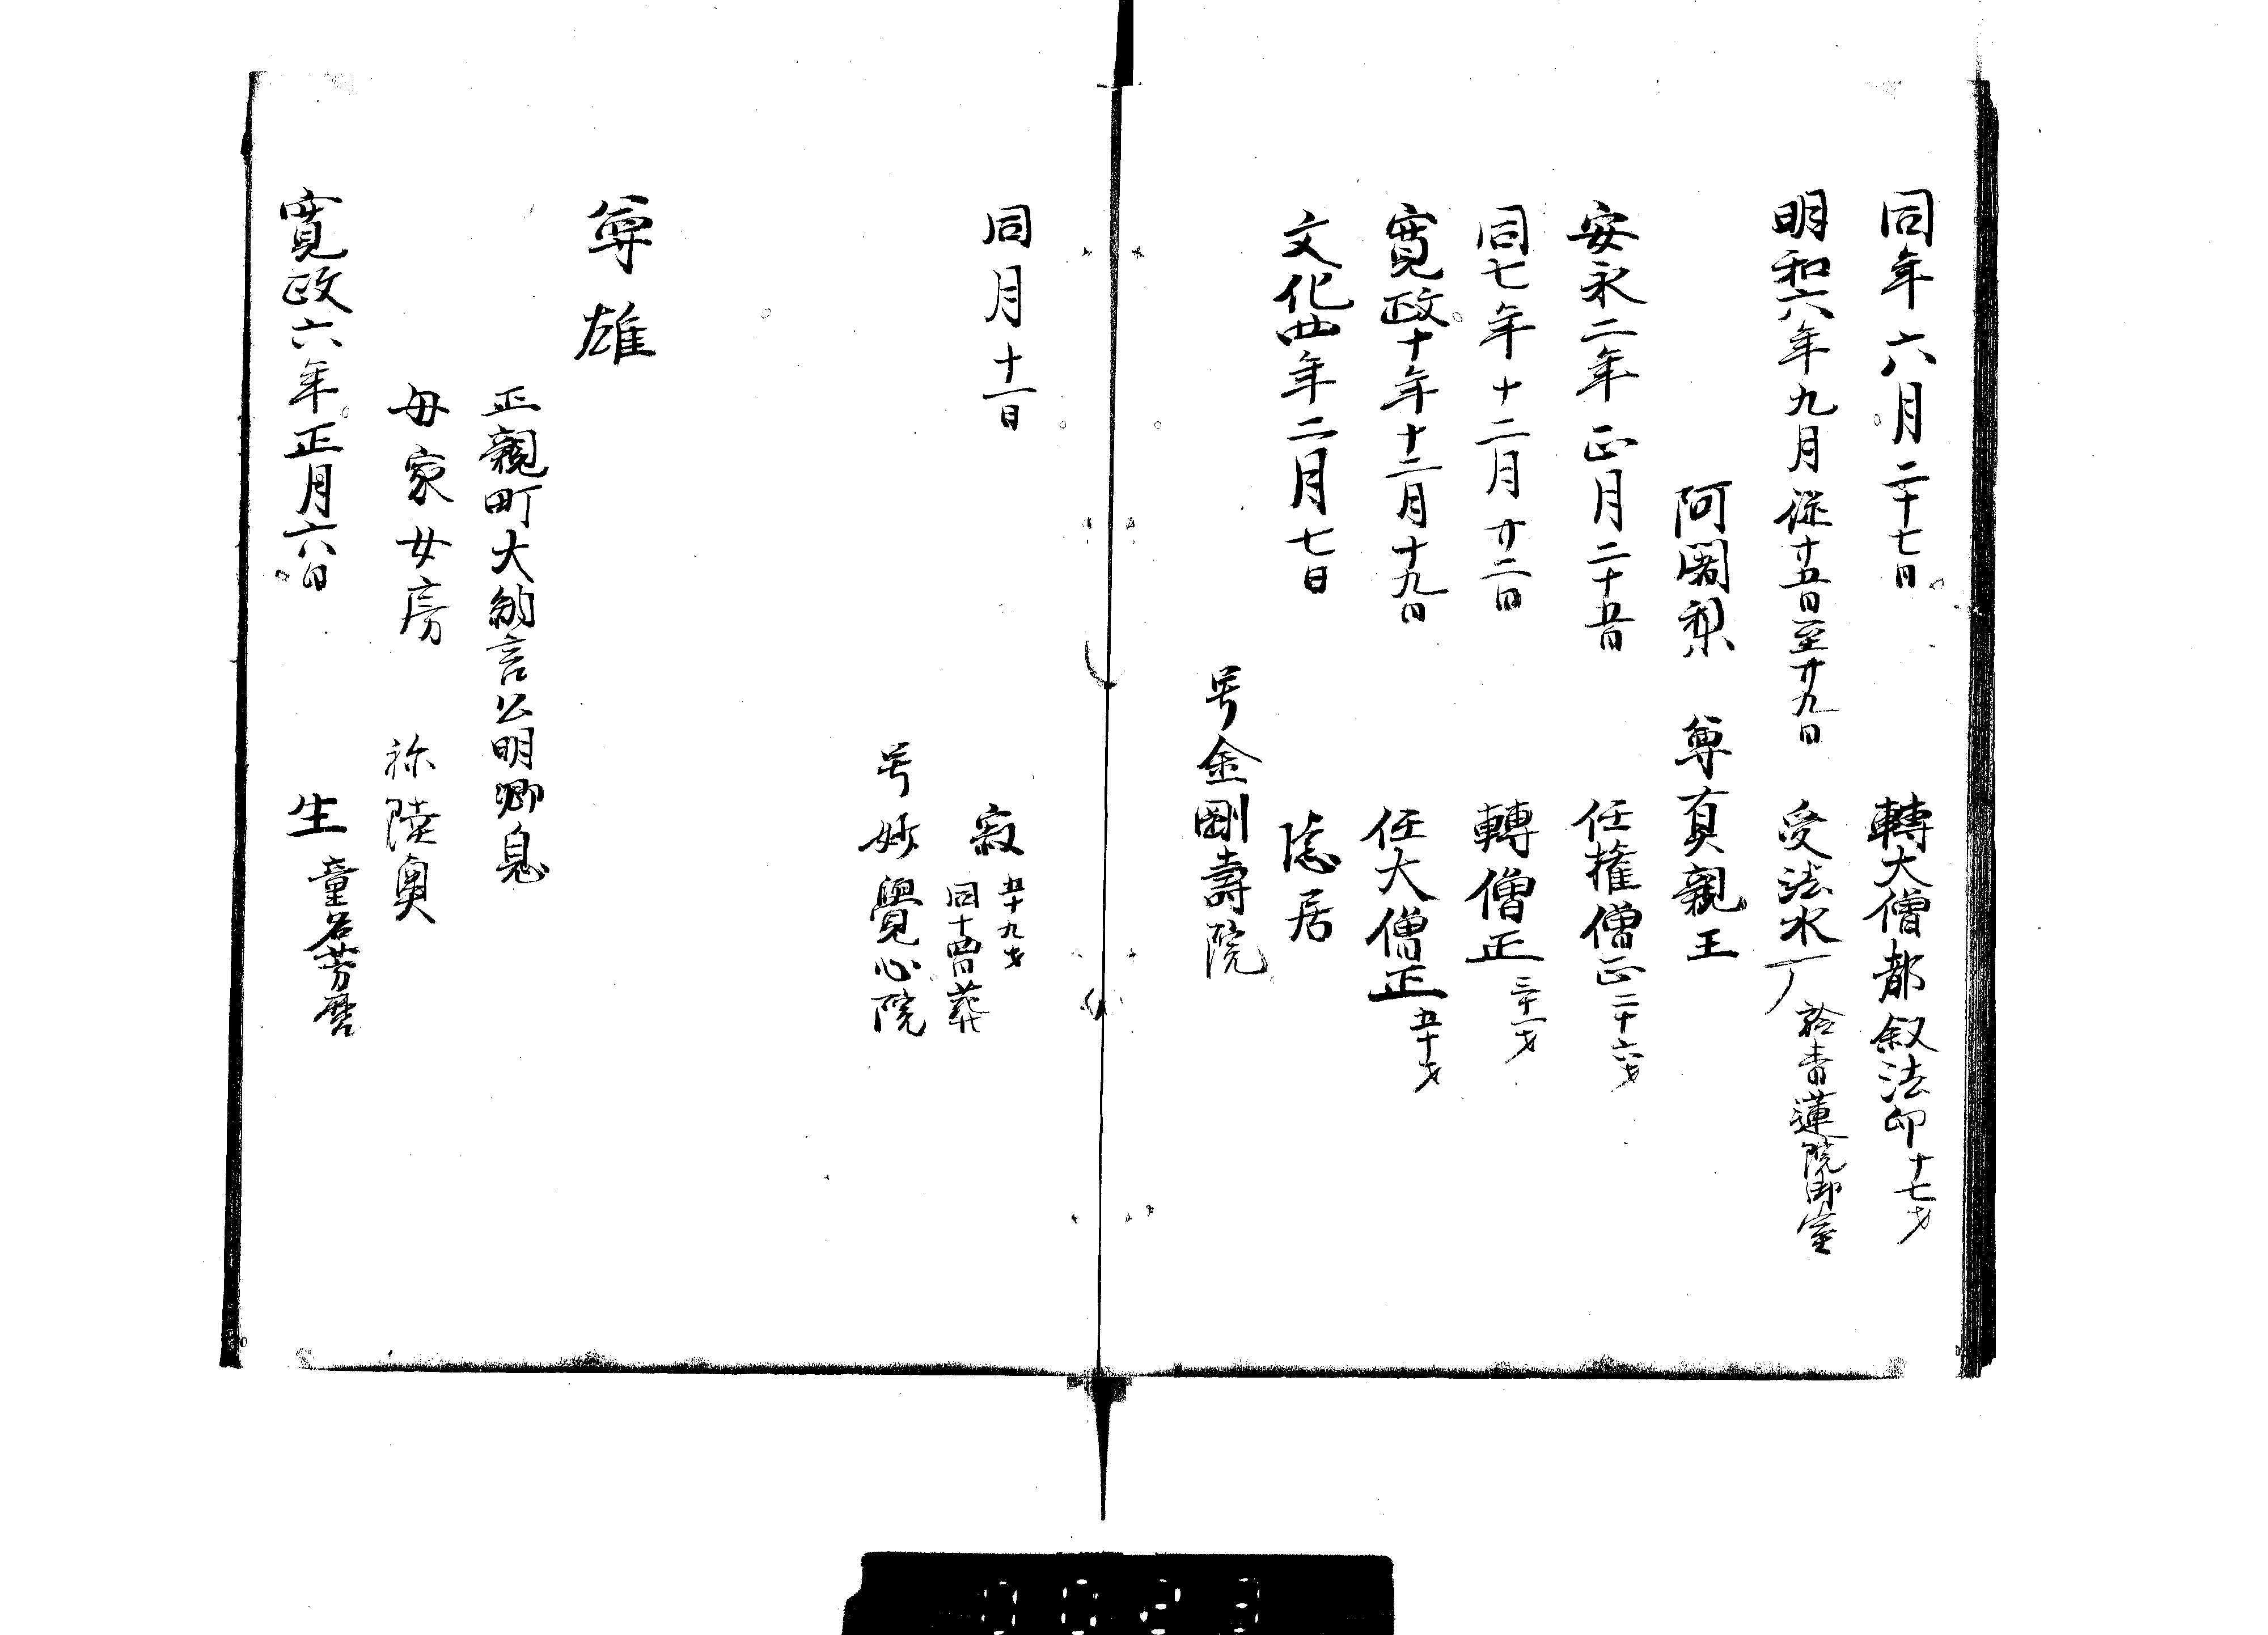 同年六月二十七日　轉大僧都叙法印十七才
明和六年九月従十五日至廿九日　受法水厂於青蓮院御室
阿闍梨　尊真親王
安永二年正月二十五日　任権僧正二十六才
同七年十二月廿二日　轉僧正三十一才
寛政十年十二月十九日　任大僧正五十才
文化四年二月七日　隠居
号金剛壽院
同月十一日　寂五十九才
同十四日葬
号妙覺心院
尊雄
正親町大納言公明卿息
母家女房　称陸奥
寛政六年正月六日　生童名芳麿
0023